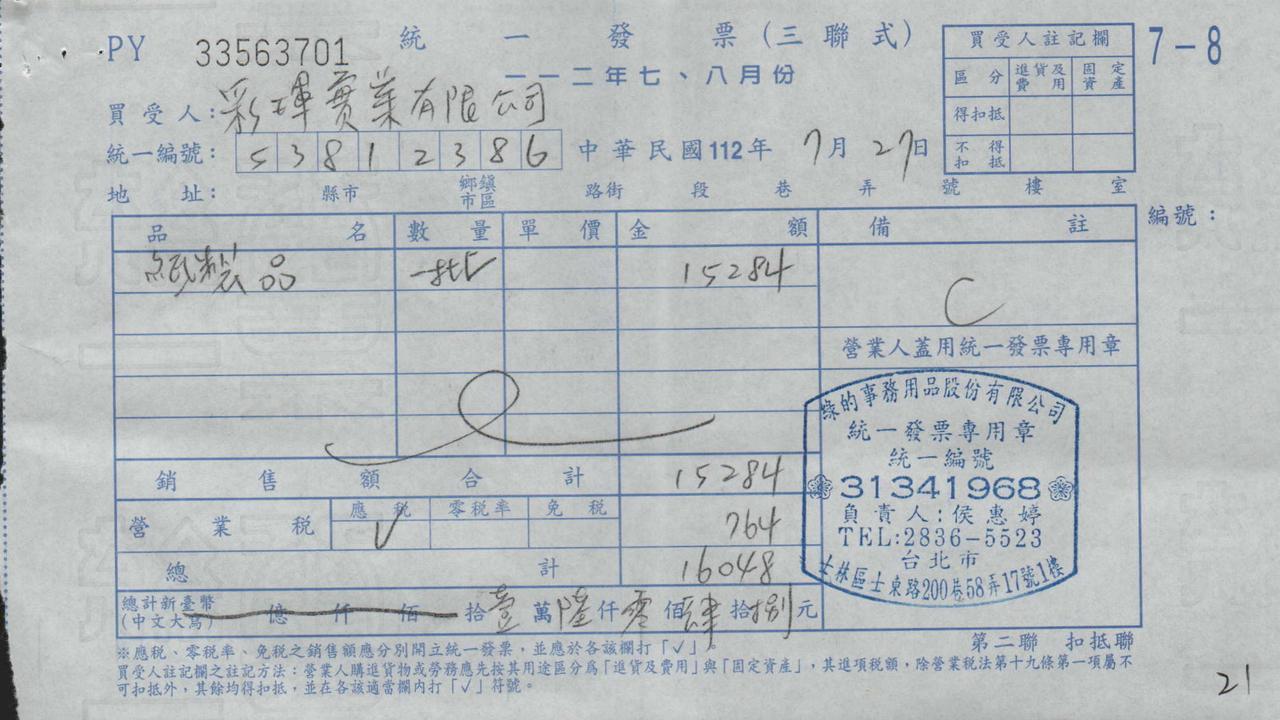 PY 33563701 統一發票(三聯式)
一一二年七、八月份
7-8
買受人註記欄
區分 進貨及費用 固定資產
得扣抵
不得扣抵
買受人:彩琿實業有限公司
統一編號: 53812386 中華民國112年7月27日
地址: 縣市 鄉鎮市區 路街 段 巷 弄 號 樓 室
品名 數量 單價 金額 備註 編號:
紙製品 一批 15284 C
營業人蓋用統一發票專用章
銷售額合計 15284
營業稅 應稅 零稅率 免稅
V 764
總計 16048
總計新臺幣(中文大寫) 億 仟 佰 拾壹萬陸仟零佰肆拾捌元
綠的事務用品股份有限公司
統一發票專用章
統一編號
31341968
負責人:侯惠婷
TEL:2836-5523
台北市
士林區士東路200巷58弄17號1樓
第二聯 扣抵聯
※應稅、零稅率、免稅之銷售額應分別開立統一發票,並應於各該欄打「✓」。
買受人註記欄之註記方法:營業人購進貨物或勞務應先按其用途區分為「進貨及費用」與「固定資產」,其進項稅額,除營業稅法第十九條第一項屬不
可扣抵外,其餘均得扣抵,並在各該適當欄內打「✓」符號。
21